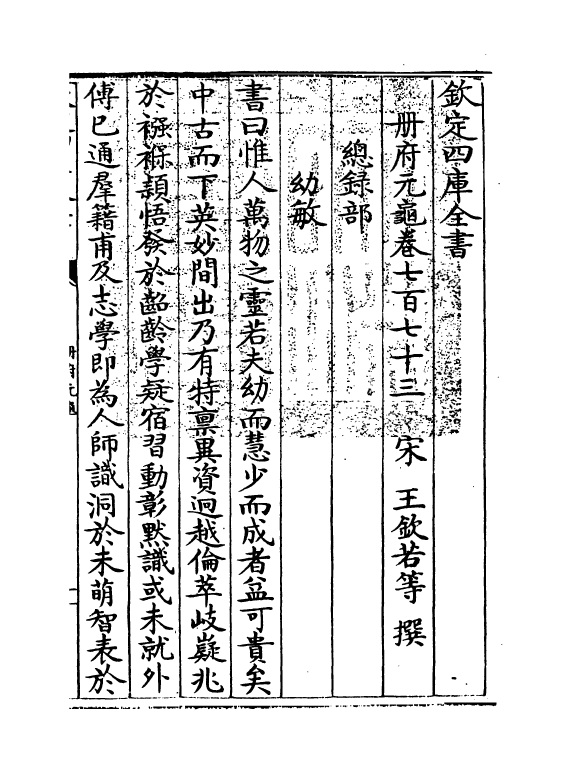 欽定四庫全書
册府元龜卷七百七十三　宋　王欽若等　撰
總録部
幼敏
書曰惟人萬物之靈若夫幼而慧少而成者益可貴矣
中古而下英妙間出乃有特禀異資迥越倫萃岐嶷兆
於襁褓頴悟發於齠齡學疑宿習動彰黙識或未就外
傅已通羣籍甫及志學即為人師識洞於未萌智表於